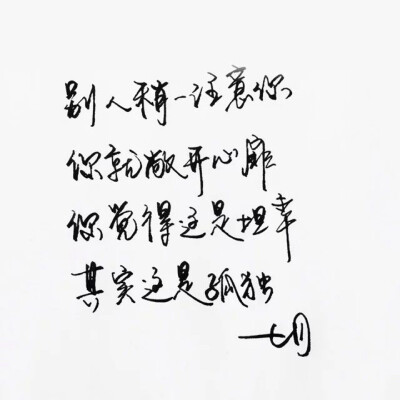 别人稍一注意你
你就敞开心扉
你觉得这是坦率
其实这是孤独
七月